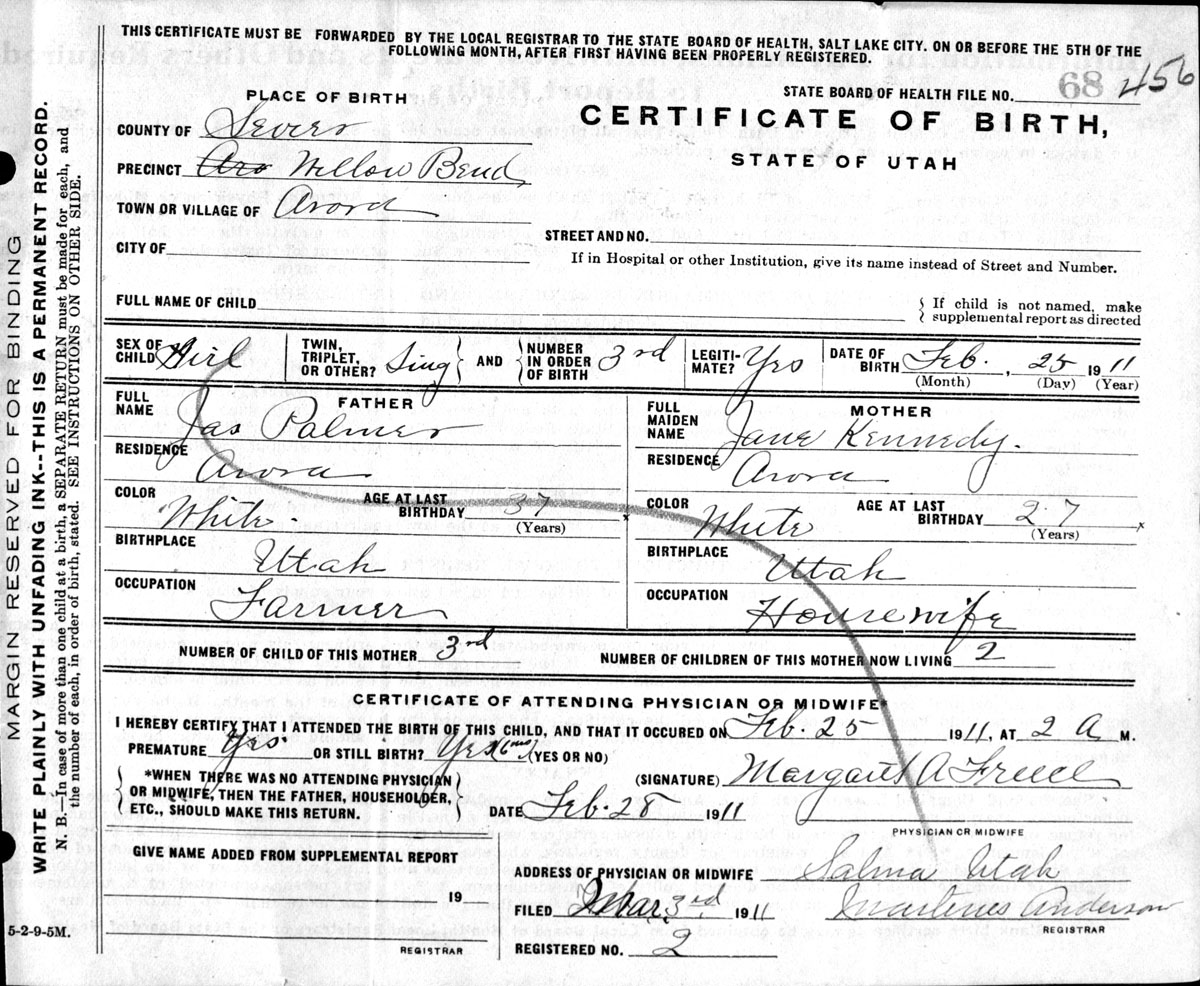 THIS CERTIFICATE MUST BE FORWARDED BY THE LOCAL REGISTRAR TO THE STATE BOARD OF HEALTH, SALT LAKE CITY. ON OR BEFORE THE 5TH OF THE
FOLLOWING MONTH, AFTER FIRST HAVING BEEN PROPERLY REGISTERED.
PLACE OF BIRTH
STATE BOARD OF HEALTH FILE NO. 68 456
COUNTY OF Sevier
CERTIFICATE OF BIRTH,
STATE OF UTAH
PRECINCT Aro Willow Bend
TOWN OR VILLAGE OF Arora
STREET AND NO.
CITY OF
If in Hospital or other Institution, give its name instead of Street and Number.
FULL NAME OF CHILD
If child is not named, make
supplemental report as directed
SEX OF CHILD Girl TWIN, TRIPLET, OR OTHER? Sing AND NUMBER IN ORDER OF BIRTH 3rd LEGITI-MATE? Yes DATE OF BIRTH Feb. , 25 1911
(Month) (Day) (Year)
FATHER
FULL NAME Jas Palmer
RESIDENCE Arora
COLOR White AGE AT LAST BIRTHDAY 37
(Years)
BIRTHPLACE Utah
OCCUPATION Farmer
MOTHER
FULL MAIDEN NAME Jane Kennedy.
RESIDENCE Arora
COLOR White AGE AT LAST BIRTHDAY 27
(Years)
BIRTHPLACE Utah
OCCUPATION Housewife
NUMBER OF CHILD OF THIS MOTHER 3rd NUMBER OF CHILDREN OF THIS MOTHER NOW LIVING 2
CERTIFICATE OF ATTENDING PHYSICIAN OR MIDWIFE*
I HEREBY CERTIFY THAT I ATTENDED THE BIRTH OF THIS CHILD, AND THAT IT OCCURED ON Feb. 25 1911, AT 2 A M.
PREMATURE Yes OR STILL BIRTH? Yes (6 mo) (YES OR NO)
*WHEN THERE WAS NO ATTENDING PHYSICIAN
OR MIDWIFE, THEN THE FATHER, HOUSEHOLDER,
ETC., SHOULD MAKE THIS RETURN.
(SIGNATURE) Margaret A Freece
DATE Feb. 28 1911
PHYSICIAN OR MIDWIFE
GIVE NAME ADDED FROM SUPPLEMENTAL REPORT
19
REGISTRAR
ADDRESS OF PHYSICIAN OR MIDWIFE Salina Utah
FILED Mar. 3rd 1911 Anderson
REGISTRAR
REGISTERED NO. 2
5-2-9-5M.
MARGIN RESERVED FOR BINDING
WRITE PLAINLY WITH UNFADING INK---THIS IS A PERMANENT RECORD.
N. B.—In case of more than one child at a birth, a SEPARATE RETURN must be made for each, and
the number of each, in order of birth, stated. SEE INSTRUCTIONS ON OTHER SIDE.